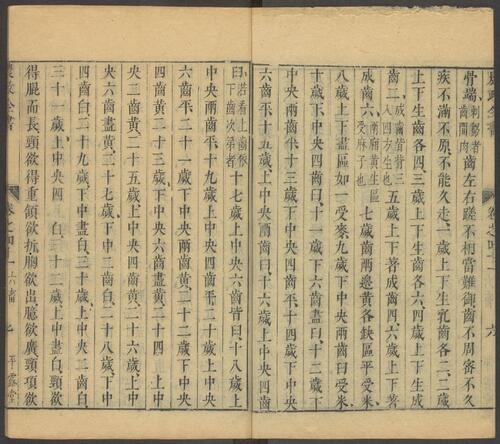 骨端刺芻者齒間肉齒左右蹉不相當難御齒不周密不久
疾不滿不原不能久走一歲上下生乳齒各二二歲
上下生齒各四三歲上下生齒各六四歲上下生成
齒二成齒皆背三入四方生也五歲上下著成齒四六歲上下著
成齒六兩廂黃生區受麻子也七歲齒兩邊黃各缺區平受米
八歲上下盡區如一受麥九歲下中央兩齒臼受米
十歲下中央四齒臼十一歲下六齒盡臼十二歲下
中央兩齒平十三歲下中央四齒平十四歲下中央
六齒平十五歲上中央兩齒臼十六歲上中央四齒
臼若看上齒依下齒次第者十七歲上中央六齒皆臼十八歲上
中央兩齒平十九歲上中央四齒平二十歲上中央
六齒平二十一歲下中央兩齒黃二十二歲下中央
四齒黃二十三歲下中央六齒盡黃二十四歲上中
央二齒黃二十五歲上中央四齒黃二十六歲上中
央六齒盡黃二十七歲下中二齒白二十八歲下中
四齒白二十九歲下中盡白三十歲上中央二齒白
三十一歲上中央四齒白三十二歲上中盡白頸欲
得而長頸欲得重頷欲折胸欲出臆欲廣頸項欲
農政全書 卷之四十一 六畜 七 平露堂